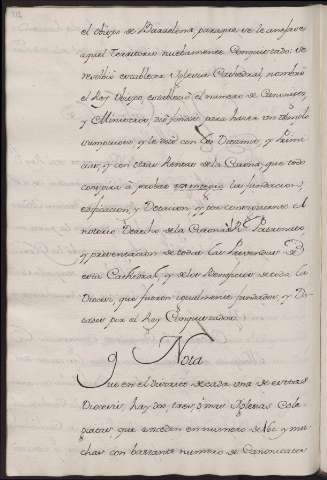 el Obispo de Barzelona, paraque se le anejase
aquel Territorio nuebamente Conquistado: se
resolvió establecer Iglesia Cathedral, nombró
el Rey Obispo, estableció el numero de Canonicos,
y Ministros, dio fondos para hacer un templo
sumptuoso, y le dotó con los Diezmos, y Primi
cias, y con otras Rentas de la Corona, que todo
conspira á probar la fundacion,
edificacion, y Dotacion, y por consiguiente el
notorio Derecho de la Corona al R.l Patronato
y presentacion de todas las Prevendas de
esta Cathedral, y de los Beneficios de toda la
Diocesi, que fueron igualmente fundados, y Do-
tados por el Rey Conquistador.
Nota
Que en el distrito de cada una de estas
Diocesis, hay dos, tres, ó mas Iglesias Cole
giatas, que exceden en numero de 160 y mu
chas con bastante numero de Canonicatos